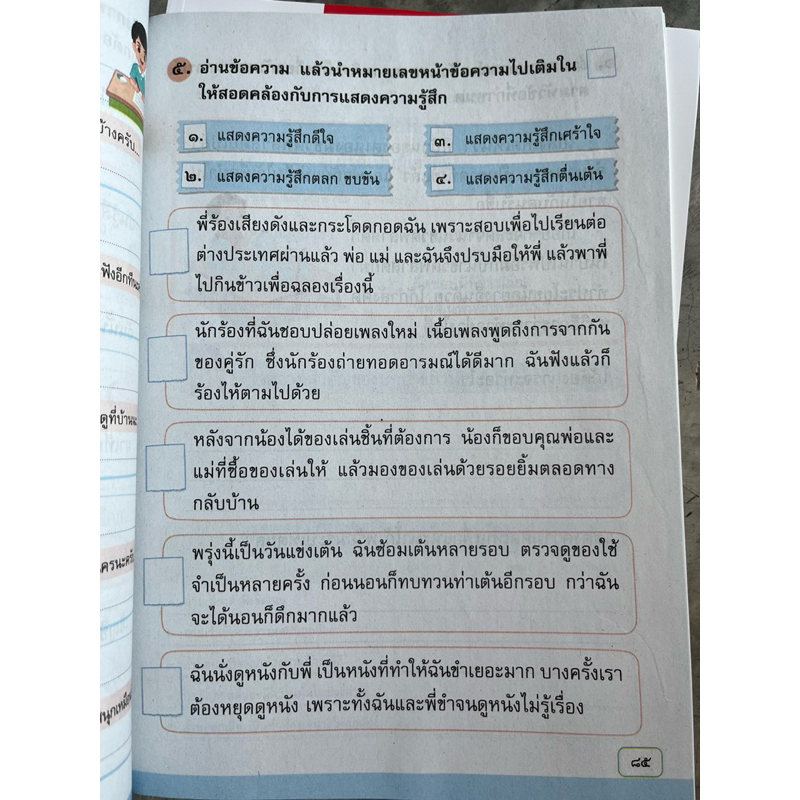 ๕. อ่านข้อความ แล้วนำหมายเลขหน้าข้อความไปเติมใน
ให้สอดคล้องกับการแสดงความรู้สึก
๑. แสดงความรู้สึกดีใจ
๓. แสดงความรู้สึกเศร้าใจ
๒. แสดงความรู้สึกตลก ขบขัน
๔. แสดงความรู้สึกตื่นเต้น
พี่ร้องเสียงดังและกระโดดกอดฉัน เพราะสอบเพื่อไปเรียนต่อ
ต่างประเทศผ่านแล้ว พ่อ แม่ และฉันจึงปรบมือให้พี่ แล้วพาพี่
ไปกินข้าวเพื่อฉลองเรื่องนี้
นักร้องที่ฉันชอบปล่อยเพลงใหม่ เนื้อเพลงพูดถึงการจากกัน
ของคู่รัก ซึ่งนักร้องถ่ายทอดอารมณ์ได้ดีมาก ฉันฟังแล้วก็
ร้องไห้ตามไปด้วย
หลังจากน้องได้ของเล่นชิ้นที่ต้องการ น้องก็ขอบคุณพ่อและ
แม่ที่ซื้อของเล่นให้ แล้วมองของเล่นด้วยรอยยิ้มตลอดทาง
กลับบ้าน
พรุ่งนี้เป็นวันแข่งเต้น ฉันซ้อมเต้นหลายรอบ ตรวจดูของใช้
จำเป็นหลายครั้ง ก่อนนอนก็ทบทวนท่าเต้นอีกรอบ กว่าฉัน
จะได้นอนก็ดึกมากแล้ว
ฉันนั่งดูหนังกับพี่ เป็นหนังที่ทำให้ฉันขำเยอะมาก บางครั้งเรา
ต้องหยุดดูหนัง เพราะทั้งฉันและพี่ขำจนดูหนังไม่รู้เรื่อง
๘๕